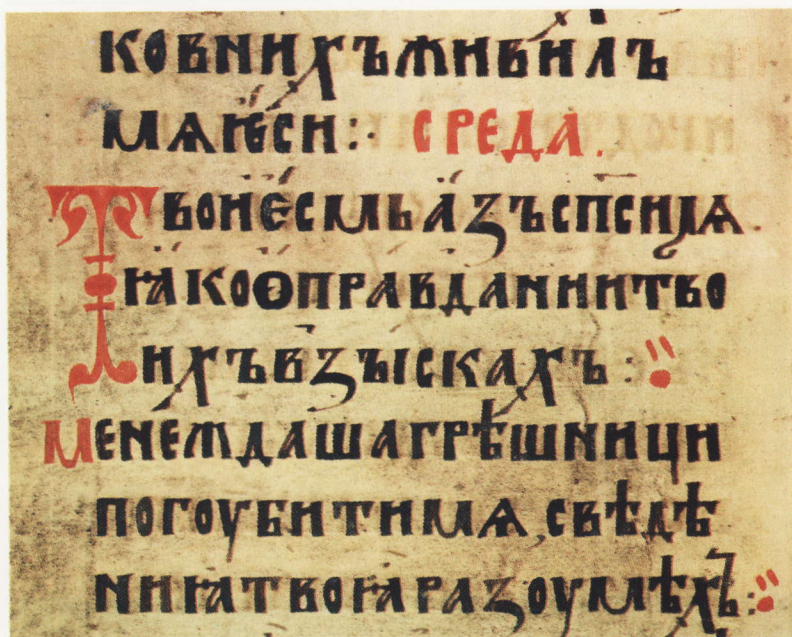 КОВНИХЪЖИВИЛЪ
МѦѤСИ:· СРЕДА.
ТВОИЕСМЬАЗЪСПСИМѦ
ꙖКООПРАВДАНИИТВО
ИХЪВЗЪІСКАХЪ:
МЕНЕЖДАШАГРѢШНИЦИ
ПОГОУБИТИМѦ,СВѢДѢ
НИꙖТВОꙖРАЗОУМѢХЪ: